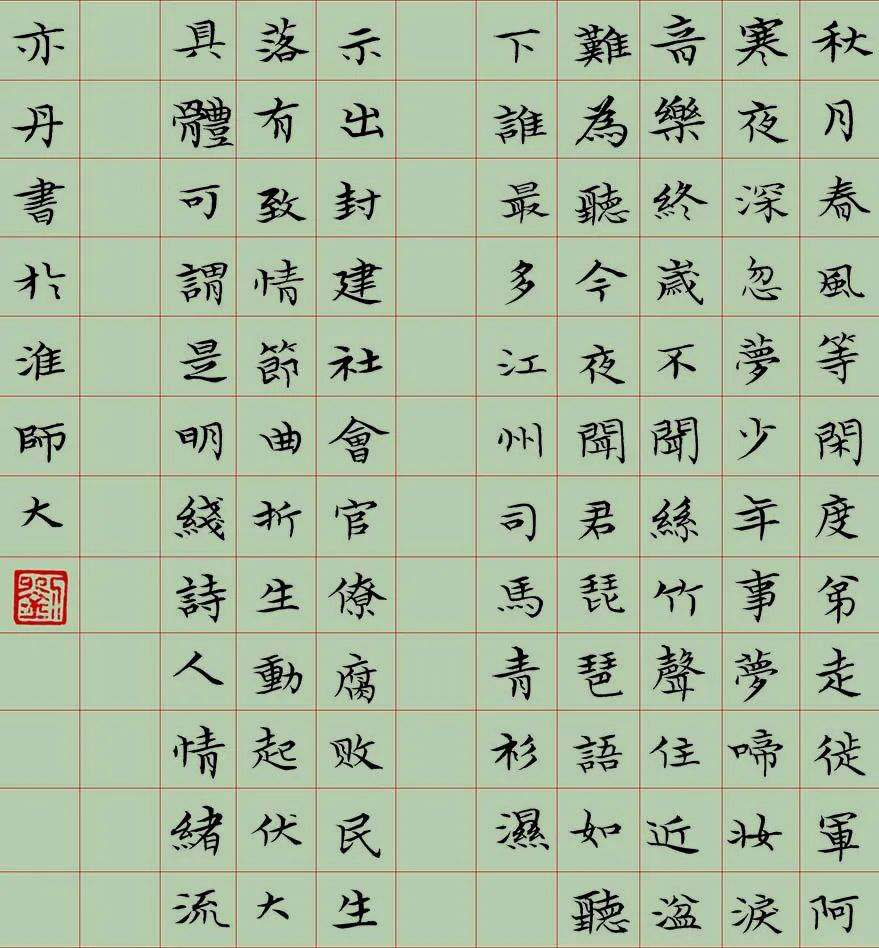 秋月春風等閑度弟走徙軍阿
寒夜深忽夢少年事夢啼妝淚
音樂終歲不聞絲竹聲住近湓
難為聽今夜聞君琵琶語如聽
下誰最多江州司馬青衫濕
示出封建社會官僚腐败民生
落有致情節曲折生動起伏大
具體可謂是明綫詩人情緒流
亦丹書於淮師大